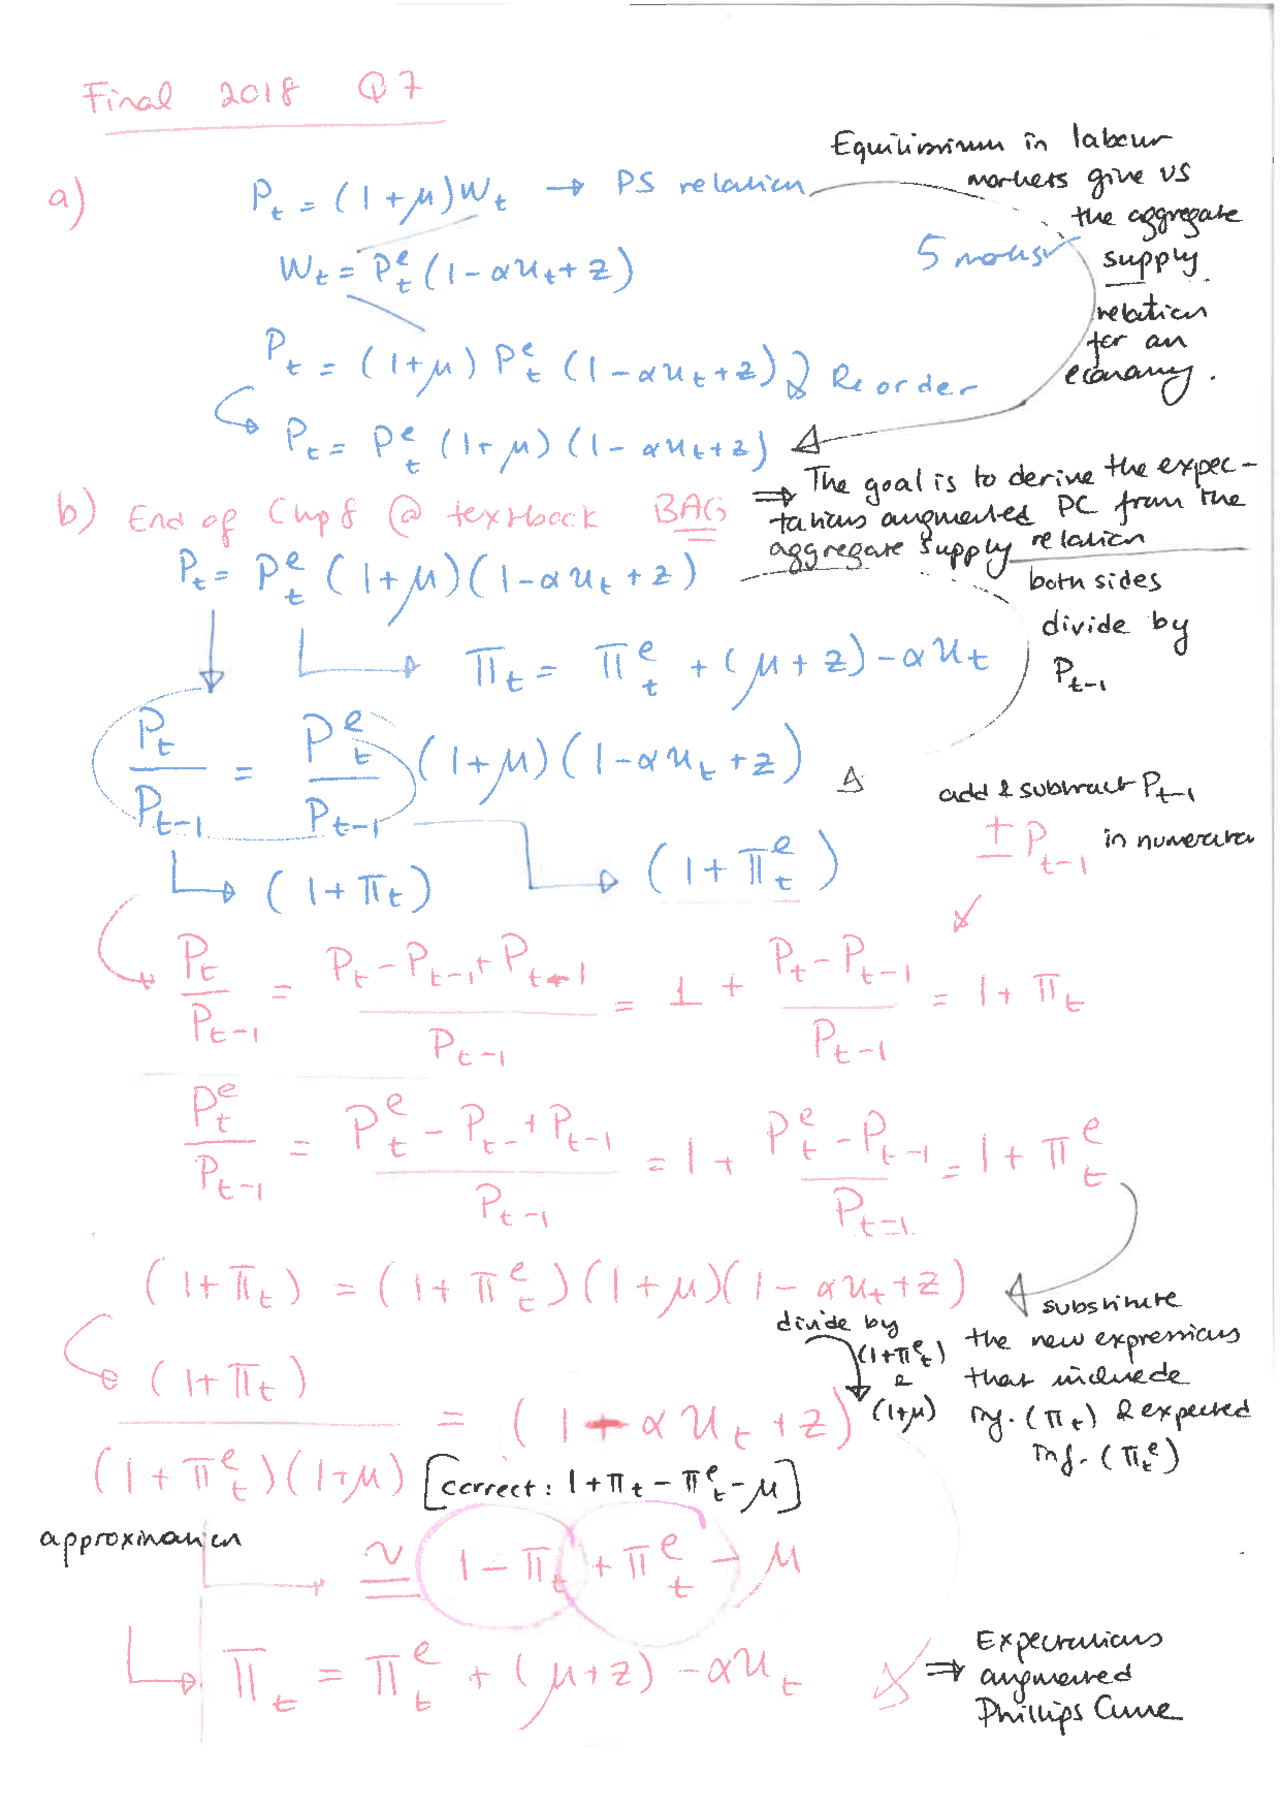 Final 2018 Q7
a)
P_t = (1+μ)W_t → PS relation
Equilibrium in labour
markets give us
the aggregate
supply
relation
for an
economy.
W_t = P_t^e (1-αu_t+z)
P_t = (1+μ) P_t^e (1-αu_t+z) Reorder
P_t = P_t^e (1+μ)(1-αu_t+z)
b) End of Chp 8 @ textbook BAG
⇒ The goal is to derive the expec-
tations augmented PC from the
aggregate supply relation
P_t = P_t^e (1+μ)(1-αu_t+z)
both sides
divide by
P_t-1
π_t = π_t^e + (μ+z) - αu_t
P_t/P_t-1 = P_t^e/P_t-1 (1+μ)(1-αu_t+z)
add & subtract P_t-1
± P_t-1 in numerator
(1+π_t) (1+π_t^e)
P_t/P_t-1 = (P_t - P_t-1 + P_t-1)/P_t-1 = 1 + (P_t - P_t-1)/P_t-1 = 1+π_t
P_t^e/P_t-1 = (P_t^e - P_t- + P_t-1)/P_t-1 = 1 + (P_t^e - P_t-1)/P_t-1 = 1+π_t^e
(1+π_t) = (1+π_t^e)(1+μ)(1-αu_t+z)
substitute
the new expressions
that include
inf. (π_t) & expected
inf. (π_t^e)
divide by
(1+π_t^e)
&
(1+μ)
(1+π_t)/((1+π_t^e)(1+μ)) = (1-αu_t+z)
[correct: 1+π_t-π_t^e-μ]
approximation
≅ 1-π_t+π_t^e-μ
π_t = π_t^e + (μ+z) - αu_t
⇒ Expectations
augmented
Phillips Curve